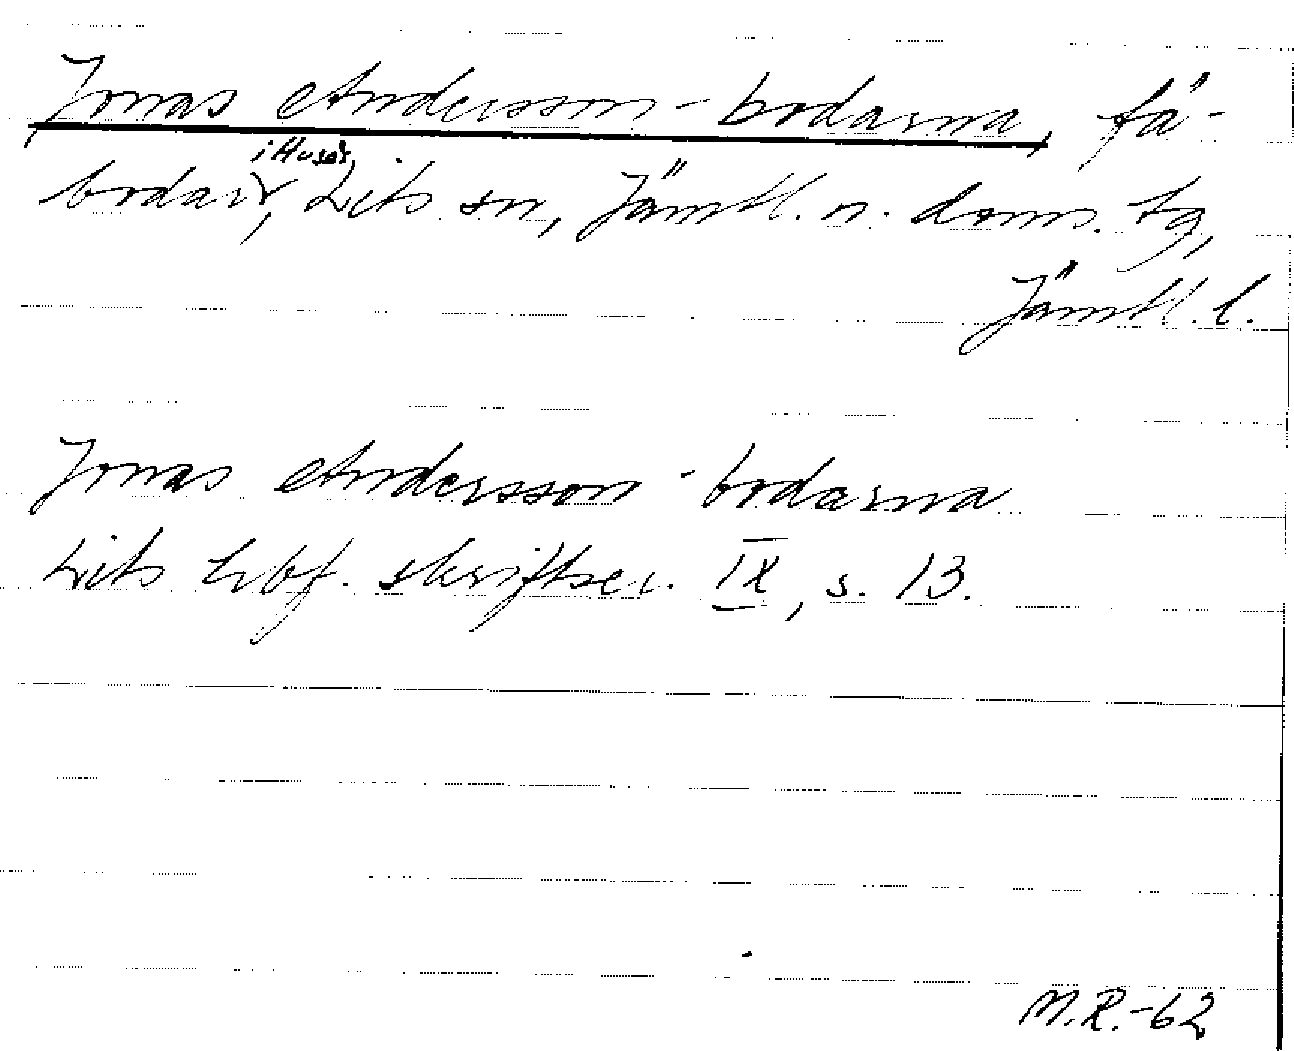 Jonas Andersson-bodarna, fä-
i Huså,
bodar, Lits sn, Jämtl. n. doms. tg,
Jämtl. l.
Jonas Andersson-bodarna
Lits hbf. skriftser. IX, s. 13.
M.R.-62